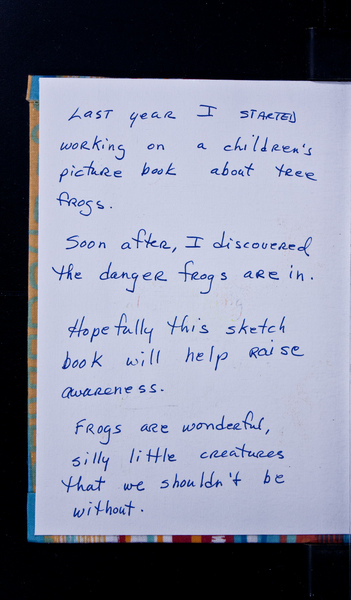 Last year I started
working on a children's
picture book about tree
frogs.
Soon after, I discovered
the danger frogs are in.
Hopefully this sketch
book will help raise
awareness.
Frogs are wonderful,
silly little creatures
that we shouldn't be
without.